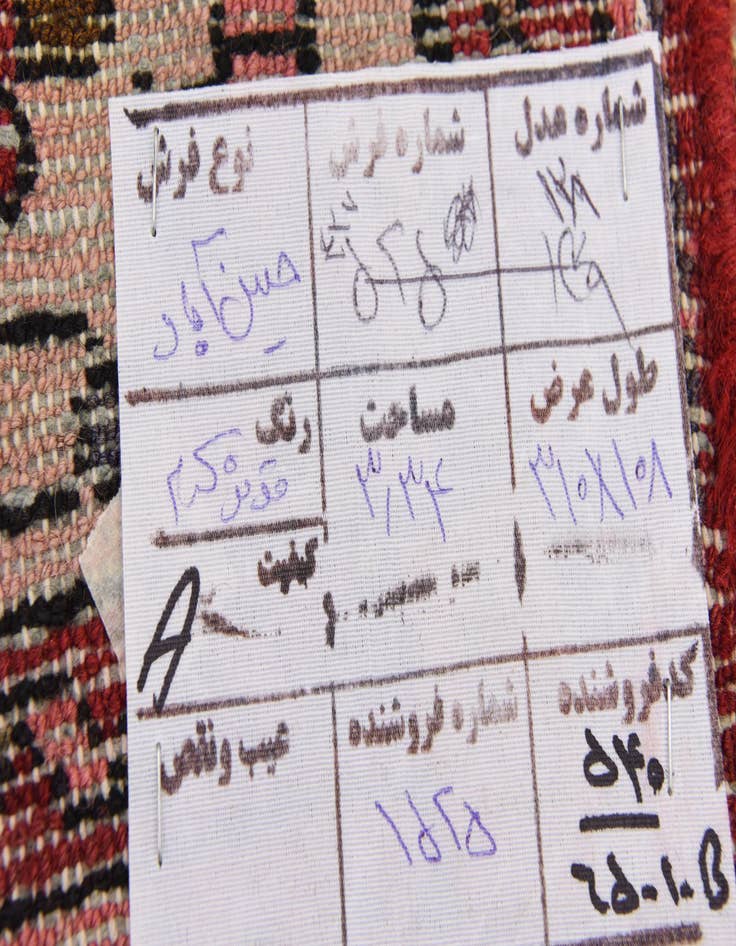 شماره عدل شماره فرش نوع فرش
۱۲۸ ۵۲۵ حسین آباد
طول عرض مساحت رنگ
۳۱۰×۱۰۸ ۳,۳۴ قرمز کرم
کیفیت
A
کد فروشنده شماره فروشنده عیب و نقص
۵۴۰ ۱۵۲۵
۲۵-۱-B